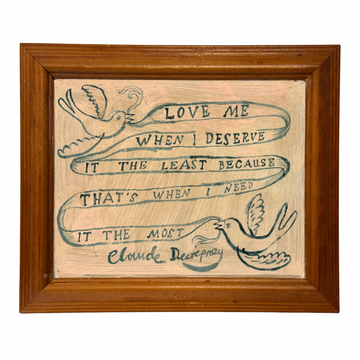 LOVE ME
WHEN I DESERVE
IT THE LEAST BECAUSE
THAT'S WHEN I NEED
IT THE MOST
Claude